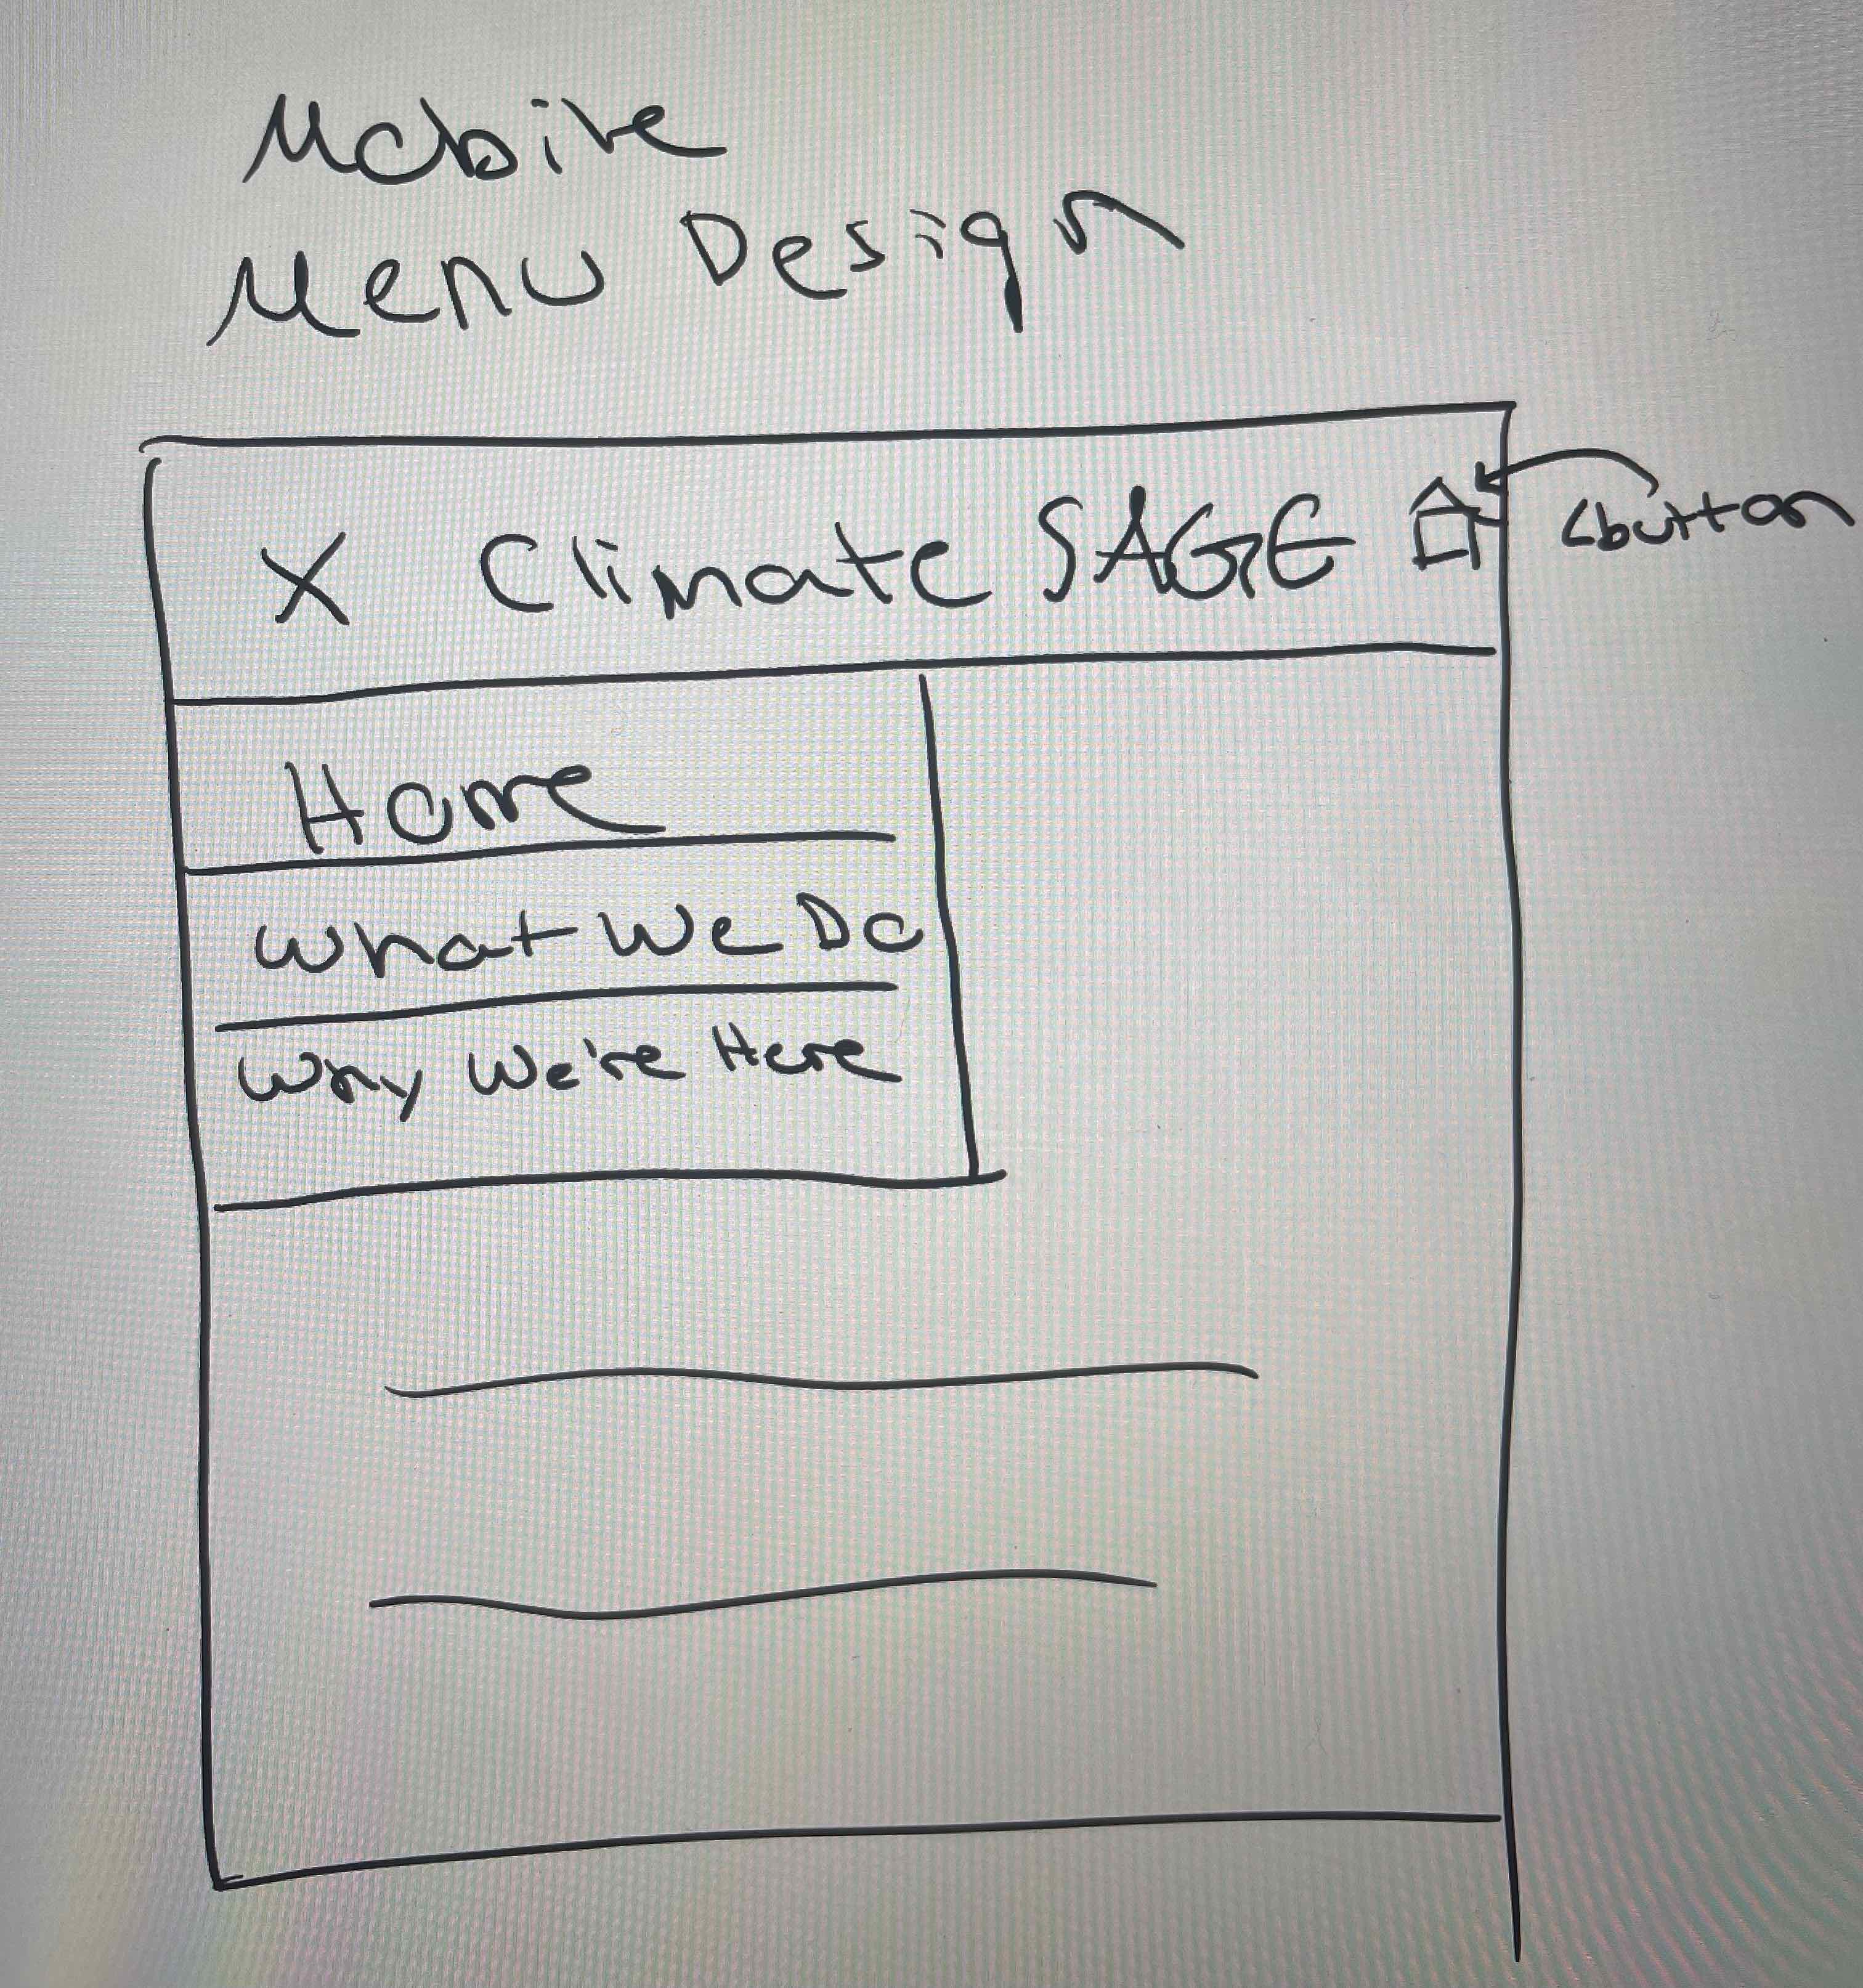 Mobile
Menu Design
X Climate SAGE
<button
Home
What We Do
Why We're Here